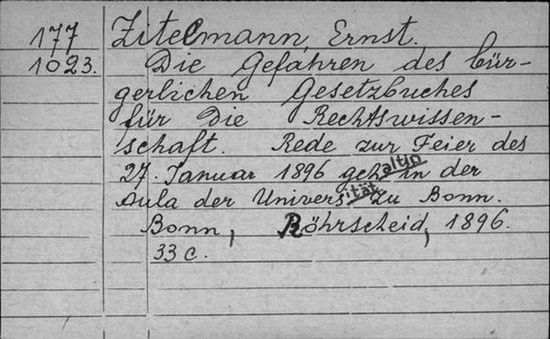 177 Zitelmann, Ernst.
1023. Die Gefahren des bür-
gerlichen Gesetzbuches
für Die Rechtswissen-
schaft. Rede zur Feier des
27. Januar 1896 gehaltin in der
Aula der Universität zu Bonn.
Bonn, Röhrscheid, 1896.
33 c.